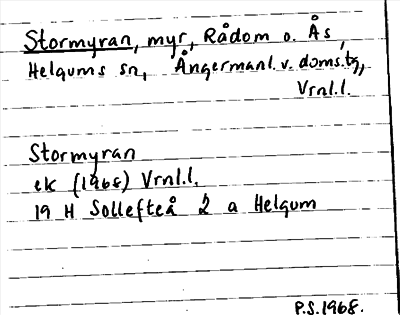 Stormyran, myr, Rådom o. Ås,
Helgums sn, Ångermanl. v. doms.tg,
Vrnl.l.
Stormyran
ek (1968) Vrnl.l.
19 H Sollefteå 2 a Helgum
P.S. 1968.